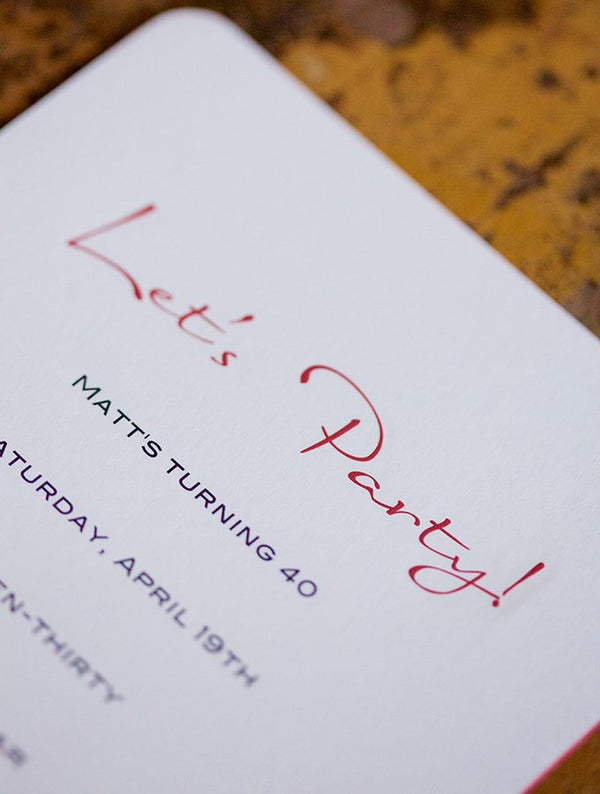 Let's Party!
MATT'S TURNING 40
ATURDAY, APRIL 19TH
EN-THIRTY